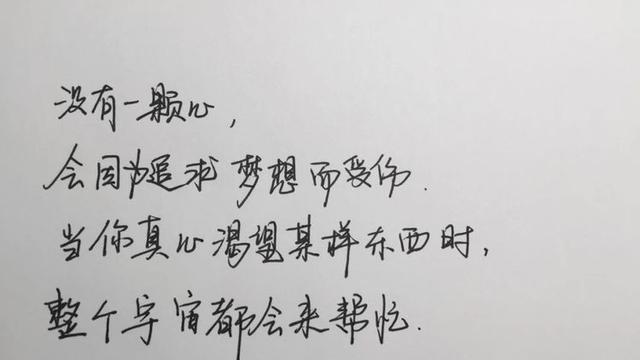 没有一颗心,
会因为追求梦想而受伤.
当你真心渴望某样东西时,
整个宇宙都会来帮忙.